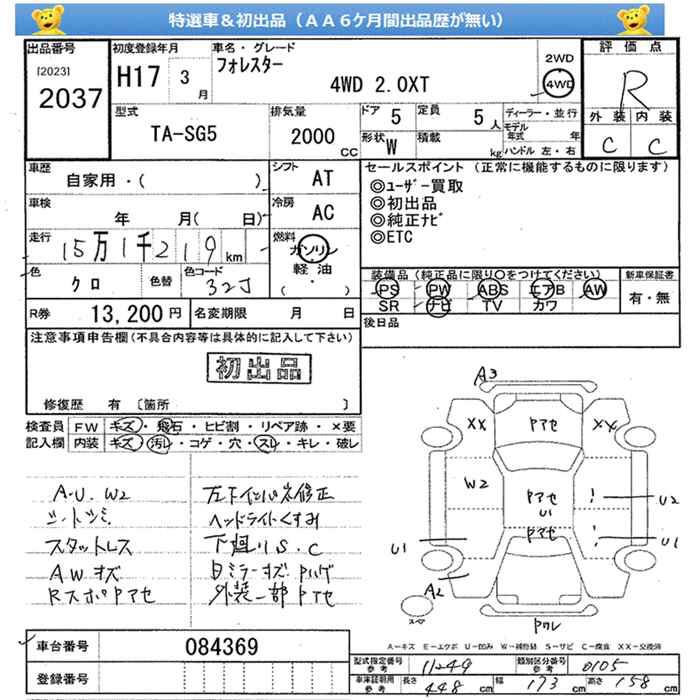 特選車＆初出品（ＡＡ６ケ月間出品歴が無い）
出品番号 初度登録年月 車名・グレード 評価点
[2023] 2037
H17 3月
フォレスター
4WD 2.0XT
2WD
4WD
R
型式 TA-SG5
排気量 2000 CC
ドア 5 定員 5人
形状 W 積載 kg
ディーラー・並行
モデル年式 年
ハンドル 左・右
外装 内装
C C
車歴 自家用・( )
シフト AT
車検 年 月( 日)
冷房 AC
走行 15万1千219km
燃料 ガソリン
軽油
( ・ )
色 クロ 色替 色コード 32J
R券 13,200円 名変期限 月 日
セールスポイント (正常に機能するものに限ります)
◎ユーザー買取
◎初出品
◎純正ナビ
◎ETC
装備品(純正品に限り○をつけてください) 新車保証書
PS PW ABS エアB AW 有・無
SR ナビ TV カワ
後日品
注意事項申告欄(不具合内容等は具体的に記入して下さい)
初出品
修復歴 有 〔箇所 〕
検査員記入欄
FW キズ・飛石・ヒビ割・リペア跡・×要
内装 キズ・汚レ・コゲ・穴・スレ・キレ・破レ
A・U.W2
シートツミ
スタットレス
AWキズ
RスポPアセ
左下インパネ修正
ヘッドライトくすみ
下廻りS.C
ミラーキズPハゲ
外装一部Pアセ
A3
XX Pアセ XX
W2 Pアセ U1 U2
Pアセ
U1 U1
A2
スペア
Pワレ
A－キズ E－エクボ U－凹み W－補修跡 S－サビ C－腐食 XX－交換済
車台番号 084369
登録番号
型式指定番号 参考 11249 類別区分番号 参考 0105
車庫証明用 参考 長さ 448cm 幅 173cm 高さ 158cm